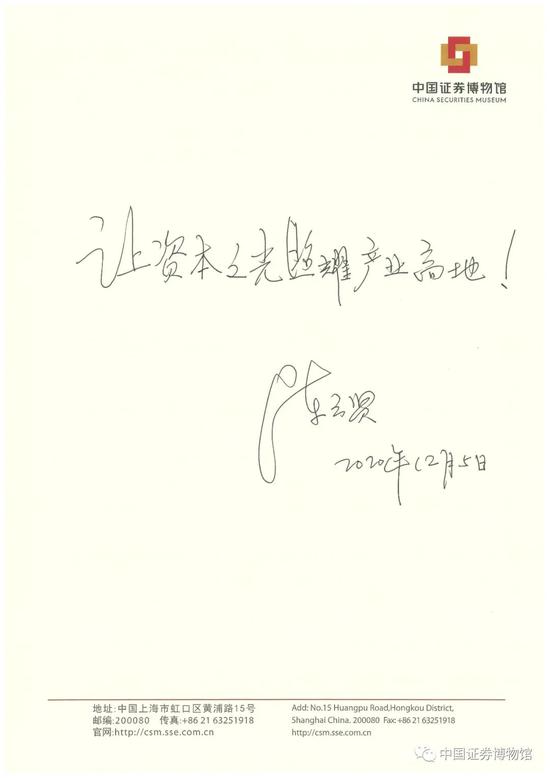 中国证券博物馆
CHINA SECURITIES MUSEUM
让资本之光照耀产业高地！
陈云贤
2020年12月5日
地址:中国上海市虹口区黄浦路15号
邮编:200080 传真:+86 21 63251918
官网:http://csm.sse.com.cn
Add: No.15 Huangpu Road,Hongkou District,
Shanghai China. 200080 Fax: +86 21 63251918
http://csm.sse.com.cn
中国证券博物馆